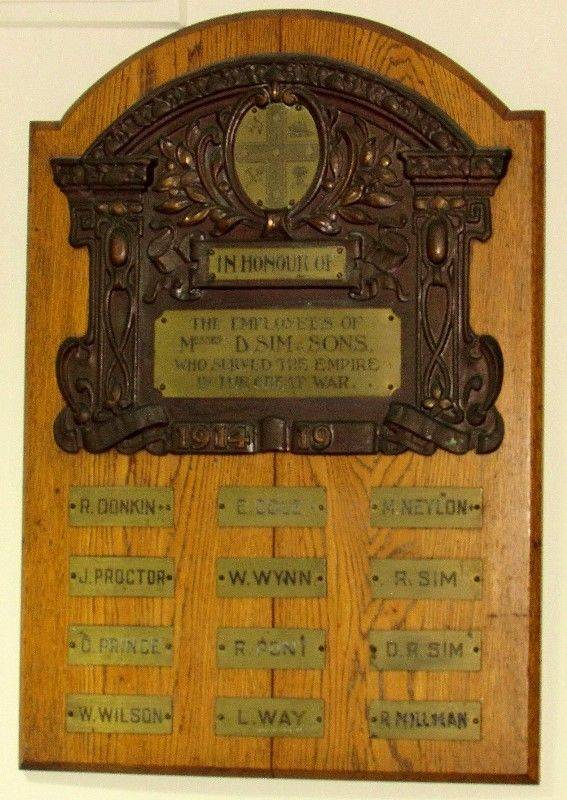 IN HONOUR OF
THE EMPLOYEES OF
MESSRS D. SIM & SONS.
WHO SERVED THE EMPIRE
IN THE GREAT WAR.
1914 19
R. DONKIN + E. M. NEYLON +
J. PROCTOR W. WYNN R. SIM
PRINCE R. D. R. SIM
W. WILSON L. WAY R. MILLMAN